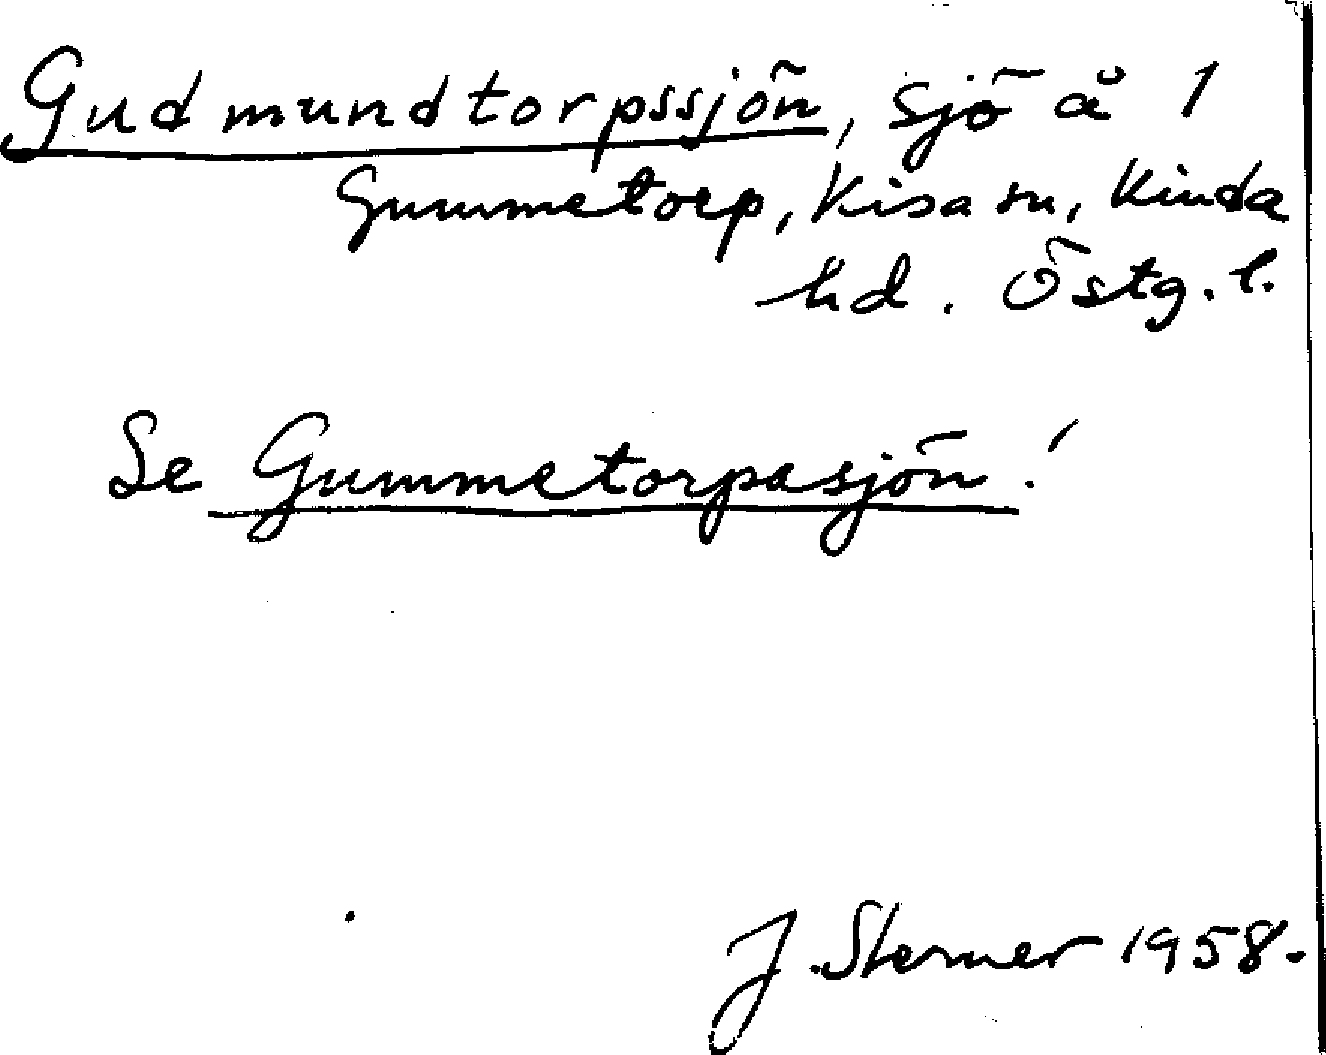 Gudmundtorpssjön, sjö å 1
Gummetorp, Kisa sn, Kinda
hd. Östg. l.
Se Gummetorpasjön!
J. Sterner 1958.